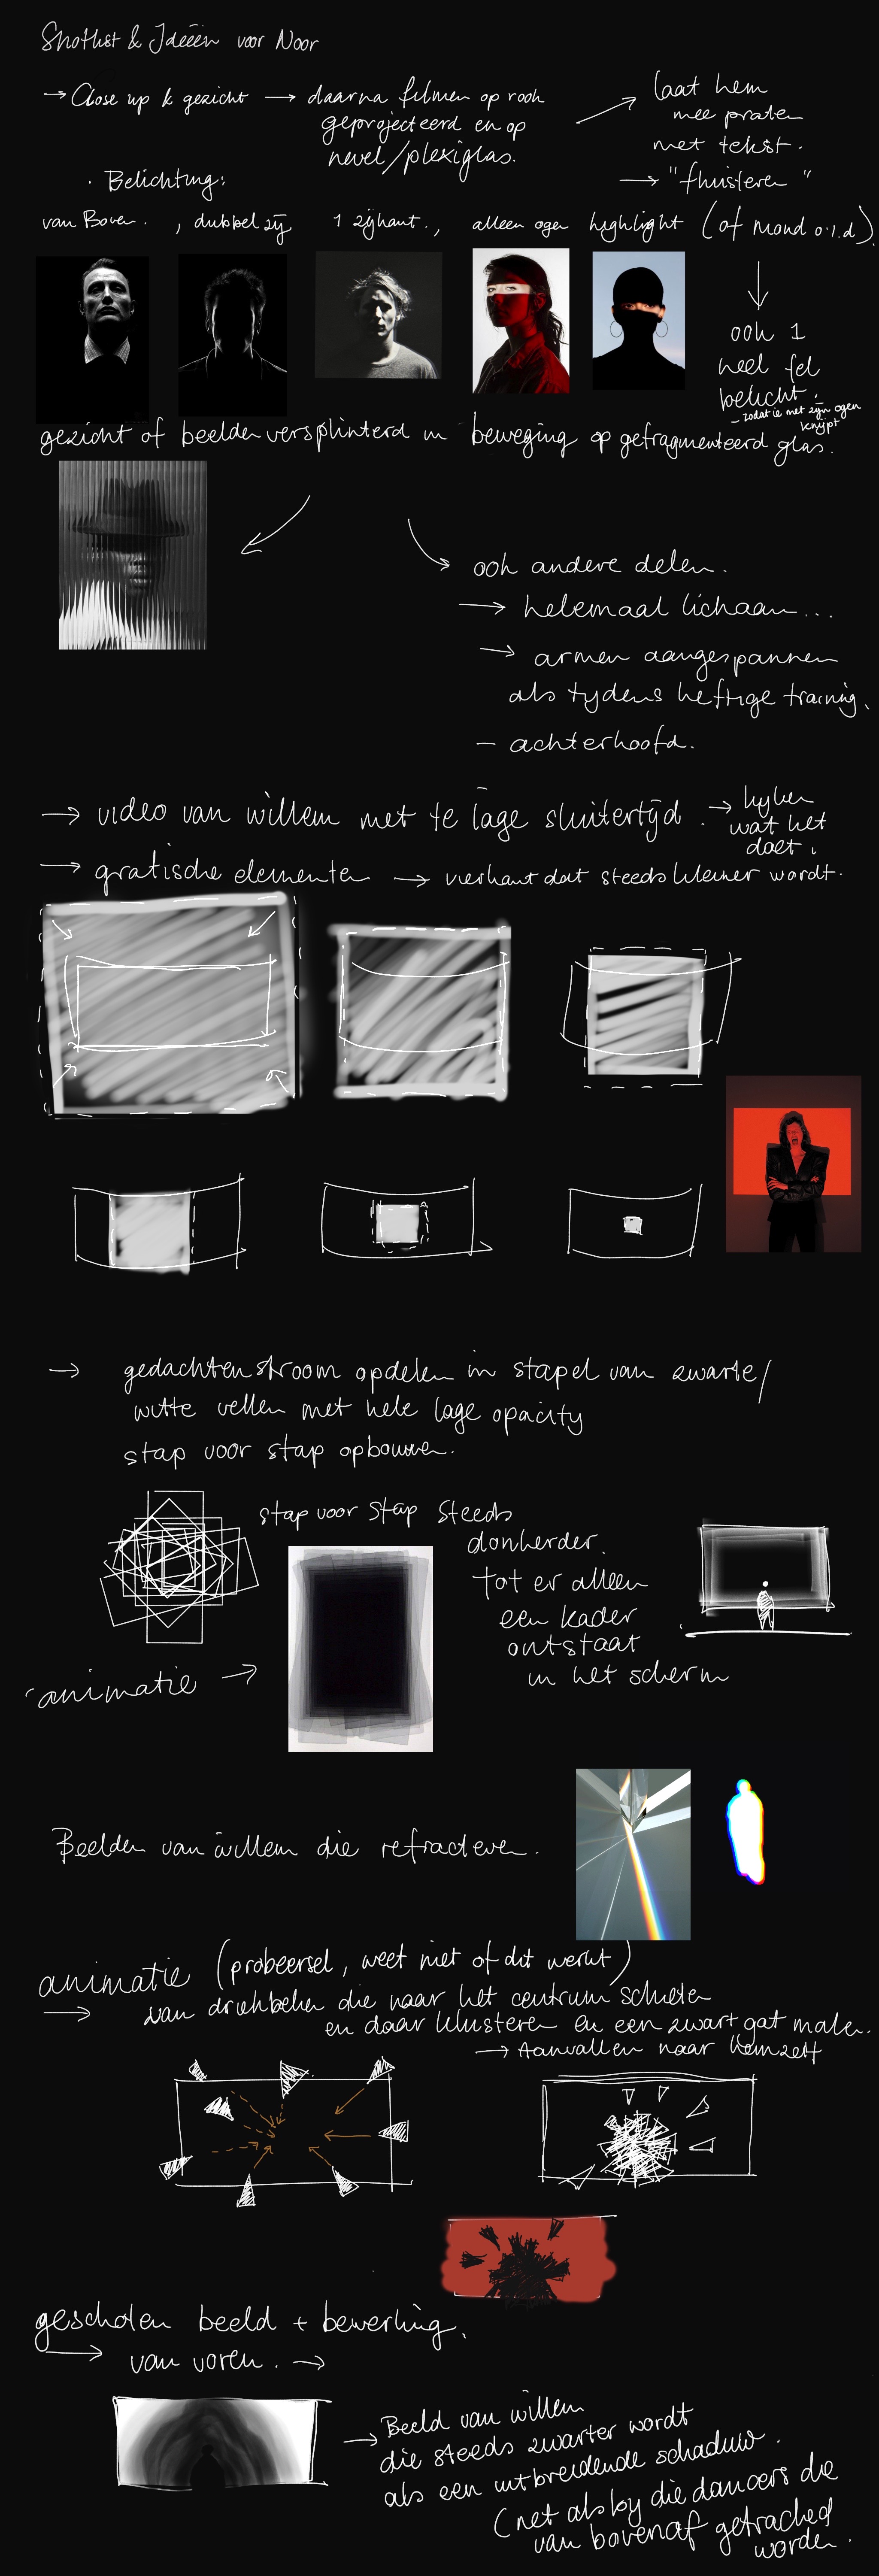 Shotlist & Ideeën voor Noor
→ Close up & gezicht → daarna filmen op rook
geprojecteerd en op
nevel/plexiglas.
laat hem
mee praten
met tekst.
→ "fluisteren"
· Belichting:
van Boven. , dubbel zij 1 zijkant., alleen ogen highlight (of mond o.i.d).
ook 1
heel fel
belicht.
- zodat ie met zijn ogen
knijpt
gezicht of beelden versplinterd in beweging op gefragmenteerd glas.
ook andere delen.
→ helemaal lichaam...
→ armen aangespannen
als tijdens heftige training.
- achterhoofd.
→ video van willem met te lage sluitertijd. → kijken
wat het
doet.
→ grafische elementen → vierkant dat steeds kleiner wordt.
→ gedachtenstroom opdelen in stapel van zwarte/
witte vellen met hele lage opacity
stap voor stap opbouwen.
stap voor stap steeds
donkerder.
tot er alleen
een kader
ontstaat
in het scherm
animatie →
Beelden van willem die refracteren.
animatie (probeersel, weet niet of dit werkt)
→ van driehoeken die naar het centrum schieten
en daar klusteren en een zwart gat maken.
→ Aanvallen naar hemzelf
geschoten beeld + bewerking.
→ van voren. →
→ Beeld van willem
die steeds zwarter wordt
als een uitbreidende schaduw.
(net als bij die dancers die
van bovenaf getracked
worden.